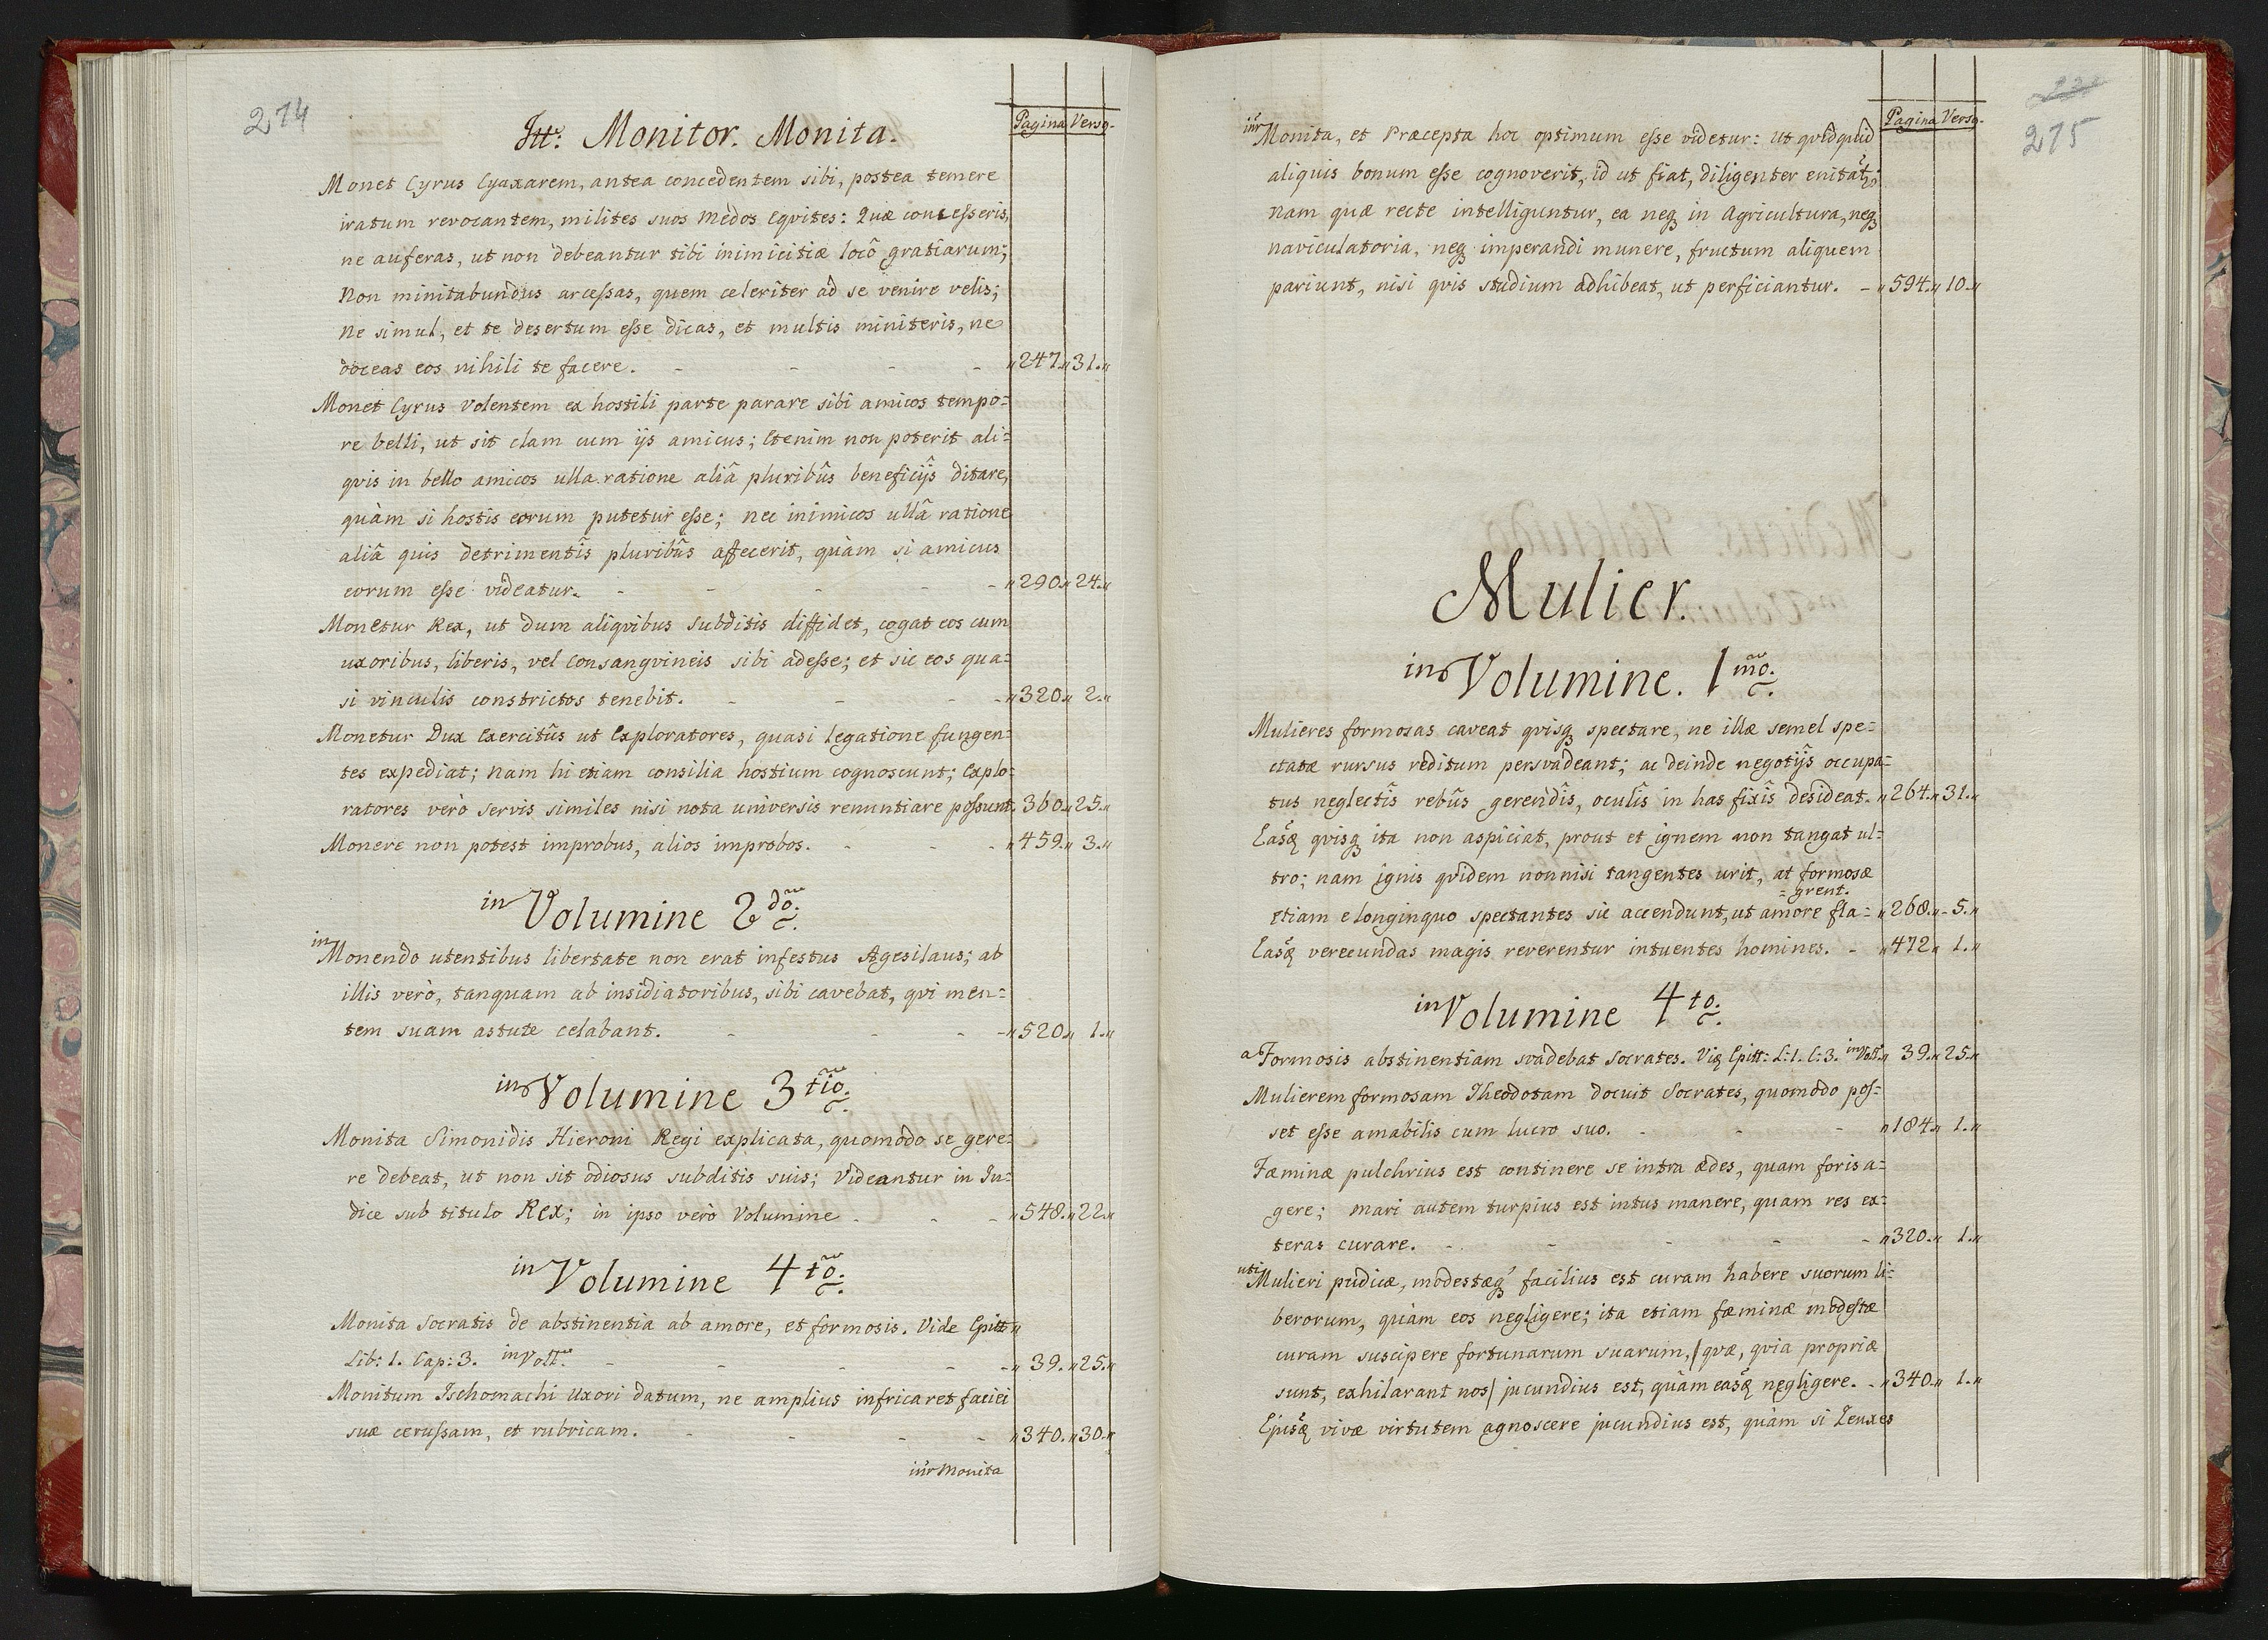 274
Itt: Monitor. Monita.
Pagina Versq.
Monet Cyrus Cyaxarem, antea concedentem sibi, postea temere
iratum revocantem, milites suos Medos Eqvites: Quæ concesseris,
ne auferas, ut non debeantur tibi inimicitiæ locô gratiarum;
Non minitabundus arcessas, quem celeriter ad se venire velis;
Ne simul, et te desertum esse dicas, et multis miniteris, ne
doceas eos nihili te facere. - - - - „247.„31.„
Monet Cyrus volentem ex hostili parte parare sibi amicos tempo=
re belli, ut sit clam cum ijs amicus; Etenim non poterit ali=
qvis in bello amicos ulla ratione aliâ pluribûs beneficijs ditare,
quàm si hostis eorum putetur esse; nec inimicos ullâ ratione
aliâ quis detrimentîs pluribûs affecerit, quàm si amicus
eorum esse videatur. - - - - - „290.„24.„
Monetur Rex, ut dum aliqvibus subditis diffidet, cogat eos cum
uxoribus, liberis, vel consangvineis sibi adesse; et sic eos qua=
si vinculis constrictos tenebit. - - - - „320.„ 2.„
Monetur Dux Exercitûs ut Exploratores, quasi legatione fungen=
tes expediat; nam hi etiam consilia hostium cognoscunt; Explo=
ratores verò servis similes nisi nota universis renuntiare possunt. 360.„25.„
Monere non potest improbus, alios improbos. - - - „459.„ 3.„
in Volumine 2do.
in Monendo utentibus libertate non erat infestus Agesilaus; ab
illis verò, tanquam ab insidiatoribus, sibi cavebat, qvi men=
tem suam astute celabant. - - - - „520.„ 1.„
in Volumine 3tio.
Monita Simonidis Hieroni Regi explicata, quomodo se gere=
re debeat, ut non sit odiosus subditis suis; Videantur in In=
dice sub titulo Rex; in ipso verò Volumine - - - „548.„22.„
in Volumine 4to.
Monita Socratis de abstinentia ab amore, et formosis. Vide Epitt„
Lib: 1. Cap: 3. in Voll: - - - - - „ 39.„25.„
Monitum Ischomachi Uxori datum, ne amplius infricaret faciei
suæ cerussam, et rubricam. - - - - „340.„30.„
Monita
275
Pagina Versq.
Monita, et Præcepta hoc optimum esse videtur: Ut qvidquid
aliquis bonum esse cognoverit, id ut fiat, diligenter enitat̃;
nam quæ recte intelliguntur, ea neq̨ in Agricultura, neq̨
naviculatoria, neq̨ imperandi munere, fructum aliquem
pariunt, nisi qvis studium adhibeat, ut perficiantur. - „594.„10.„
Mulier.
in Volumine. 1mo.
Mulieres formosas caveat qvisq̨ spectare, ne illæ semel spe=
ctatæ rursus reditum persvadeant; ac deinde negotijs occupa=
tus neglectîs rebûs gerendîs, oculîs in has fixîs desideat. „264.„31.„
Easq̨ qvisq̨ ita non aspiciat, prout et ignem non tangat ul=
tro; nam ignis qvidem nonnisi tangentes urit, at formosæ
=grent.
etiam e longinquo spectantes sic accendunt, ut amore fla= „268.„ 5.„
Easq̨ verecundas magis reverentur intuentes homines. - „472„ 1.„
in Volumine 4to.
a Formosis abstinentiam svadebat Socrates. Epitt: L: 1. C: 3. in Voll.„ 39.„25.„
Mulierem formosam Theodotam docuit Socrates, quomodo pos=
set esse amabilis cum lucro suo. - - - „184„ 1.„
Fæminæ pulchrius est continere se intra ædes, quam foris a=
gere; mari autem turpius est intus manere, quam res ex=
teras curare. - - - - - „320.„ 1.„
uti Mulieri pudicæ, modestæq̨ facilius est curam habere suorum li=
berorum, quàm eos negligere; ita etiam fæminæ modestæ
curam suscipere fortunarum suarum, /qvæ, qvia propriæ
sunt, exhilarant nos/ jucundius est, quàm easq̨ negligere. - „340.„ 1.„
Ejusq̨ vivæ virtutem agnoscere jucundius est, quàm si Zeuxes